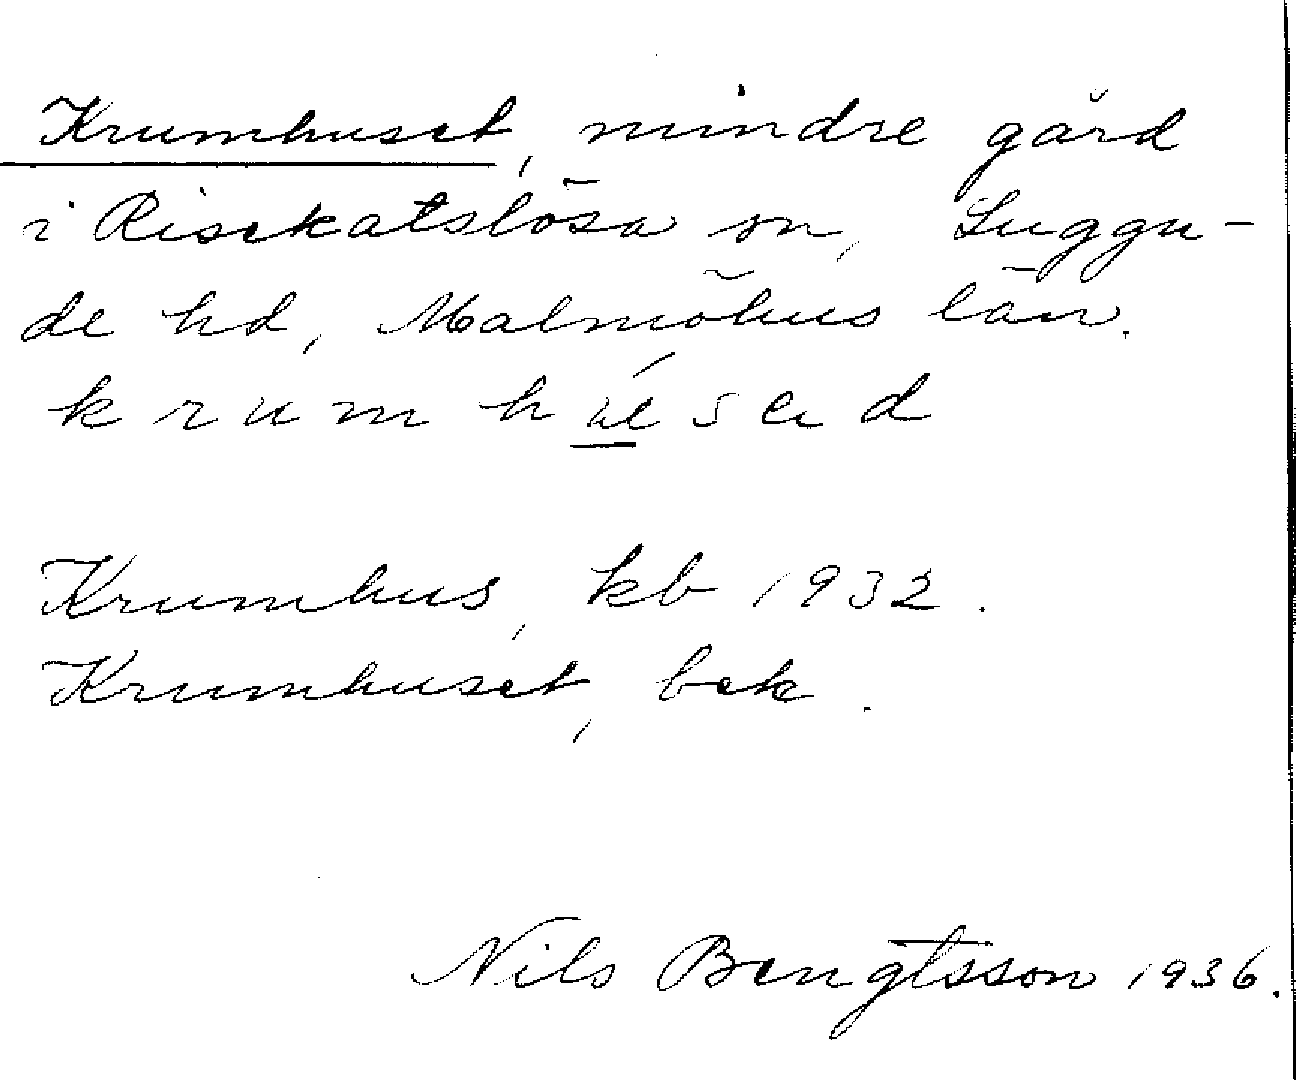 Krumhuset, mindre gård
i Risekatslösa sn, Luggu-
de hd, Malmöhus län.
Krumhus, kb 1932.
Krumhuset, bek.
Nils Bengtsson 1936.